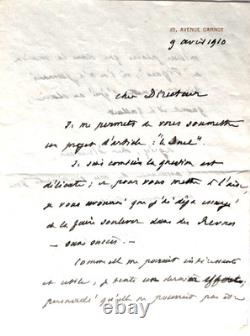 25, AVENUE CARNOT
9 avril 1910
Cher Directeur
Je me permets de vous soumettre
un projet d'article : "le Duel".
Je sais combien la question est
délicate; et pour vous mettre à l'aise,
je vous avouerai que j'ai déjà essayé
de la faire soulever dans des Revues
— sans succès. —
Comme elle me paraît intéressante
et utile, je tente un dernier effort,
persuadé qu'elle ne pourrait pas
© 123